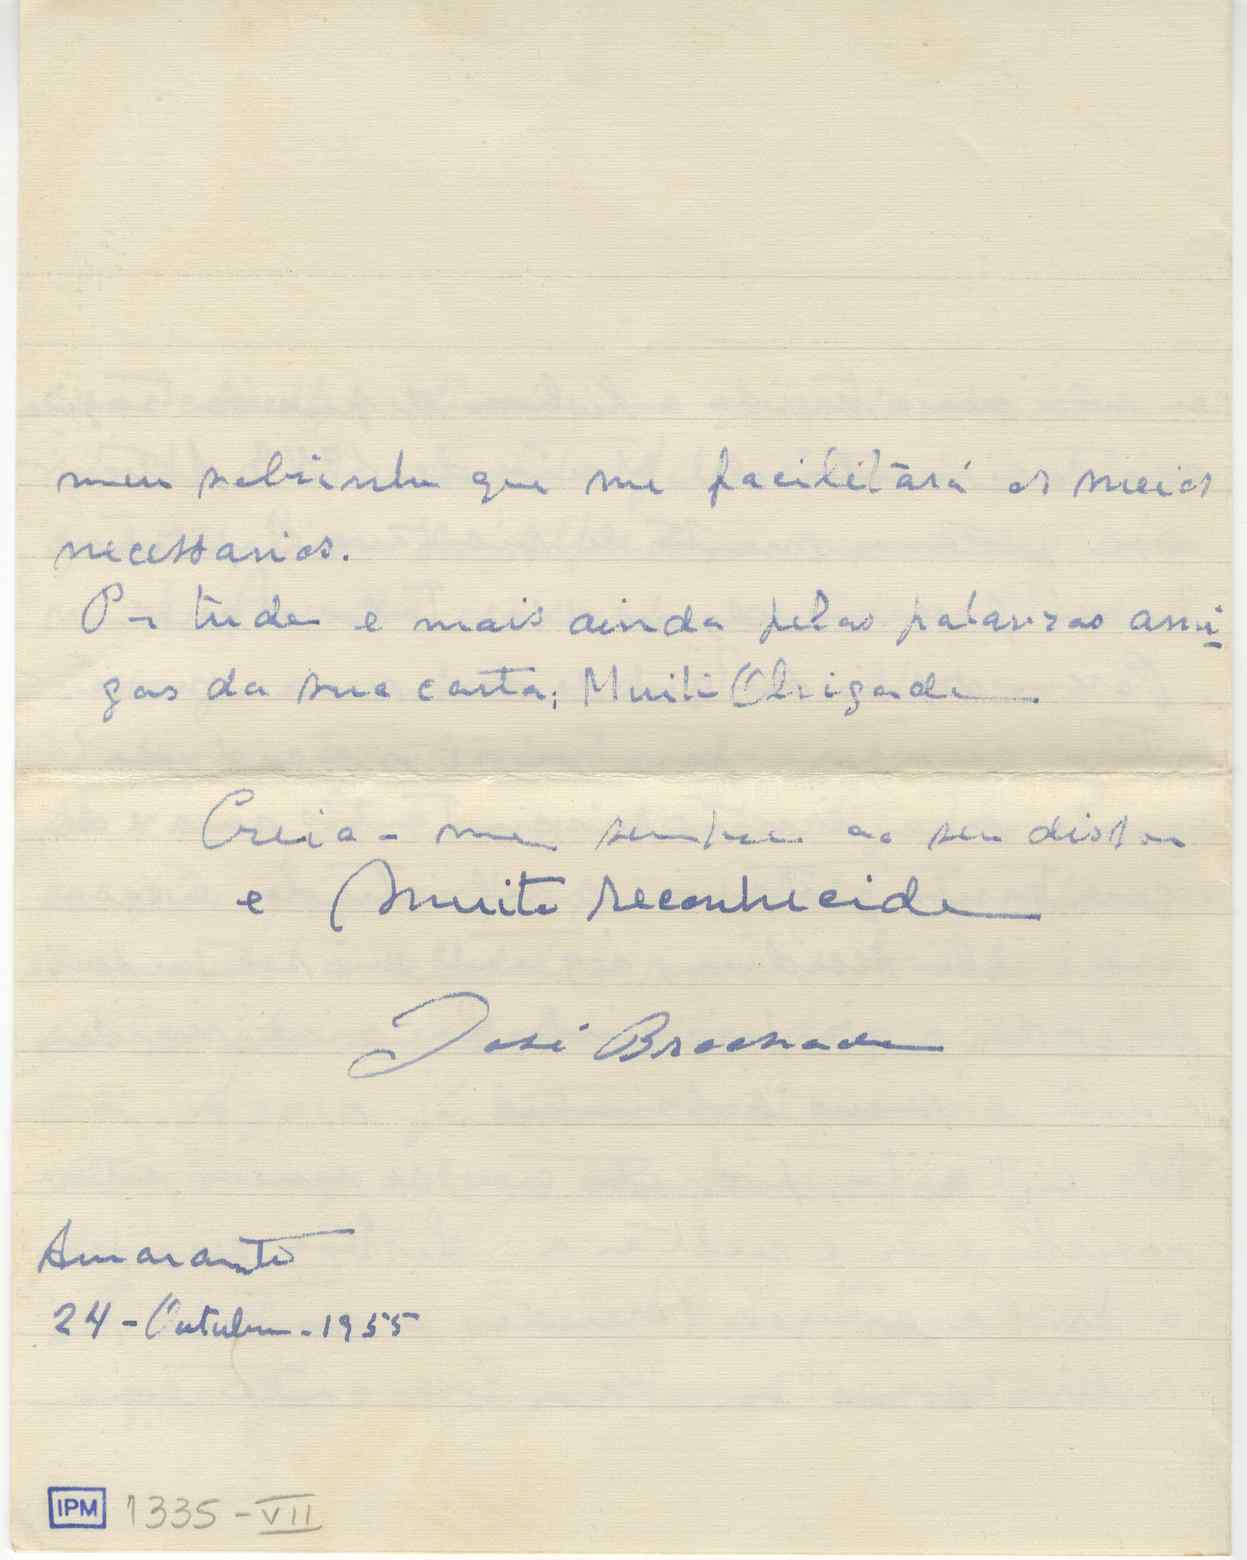 meu sobrinho que me facilitará os meios
necessarios.
Por tudo e mais ainda pelas palavras ami-
gas da sua carta; Muito Obrigado
Creia-me sempre ao seu dispor
e Muito reconhecido
José Brochado
Amarante
24 - Outubro - 1955
IPM 1335-VII